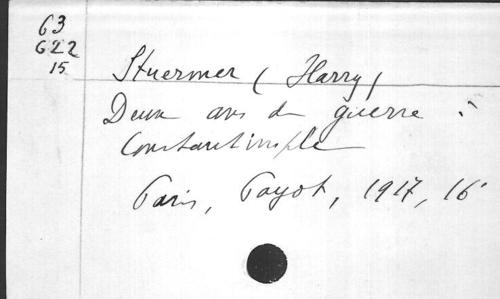 63
622
15
Stuermer (Harry)
Deux ans de guerre à
Constantinople
Paris, Payot, 1917, 16°